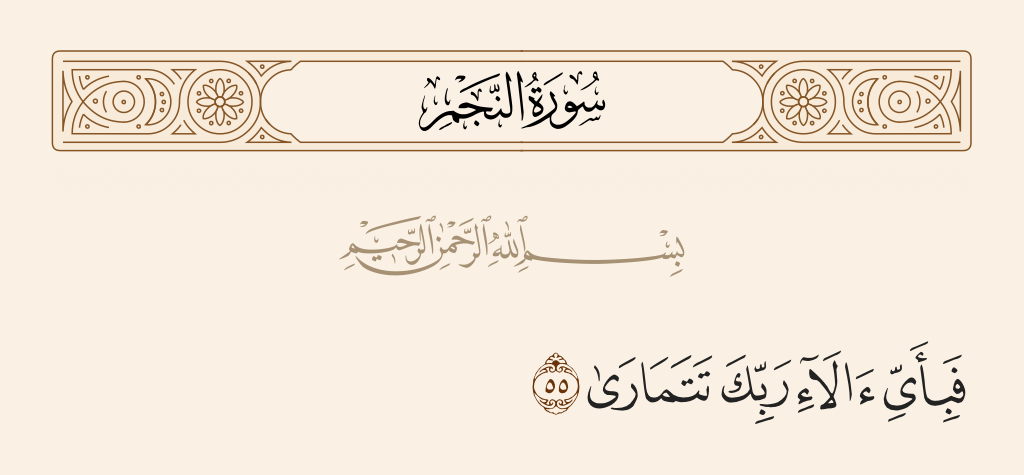 سُورَةُ النَّجْمِ
بِسْمِ ٱللَّهِ ٱلرَّحْمَٰنِ ٱلرَّحِيمِ
فَبِأَىِّ ءَالَآءِ رَبِّكَ تَتَمَارَىٰ ٥٥